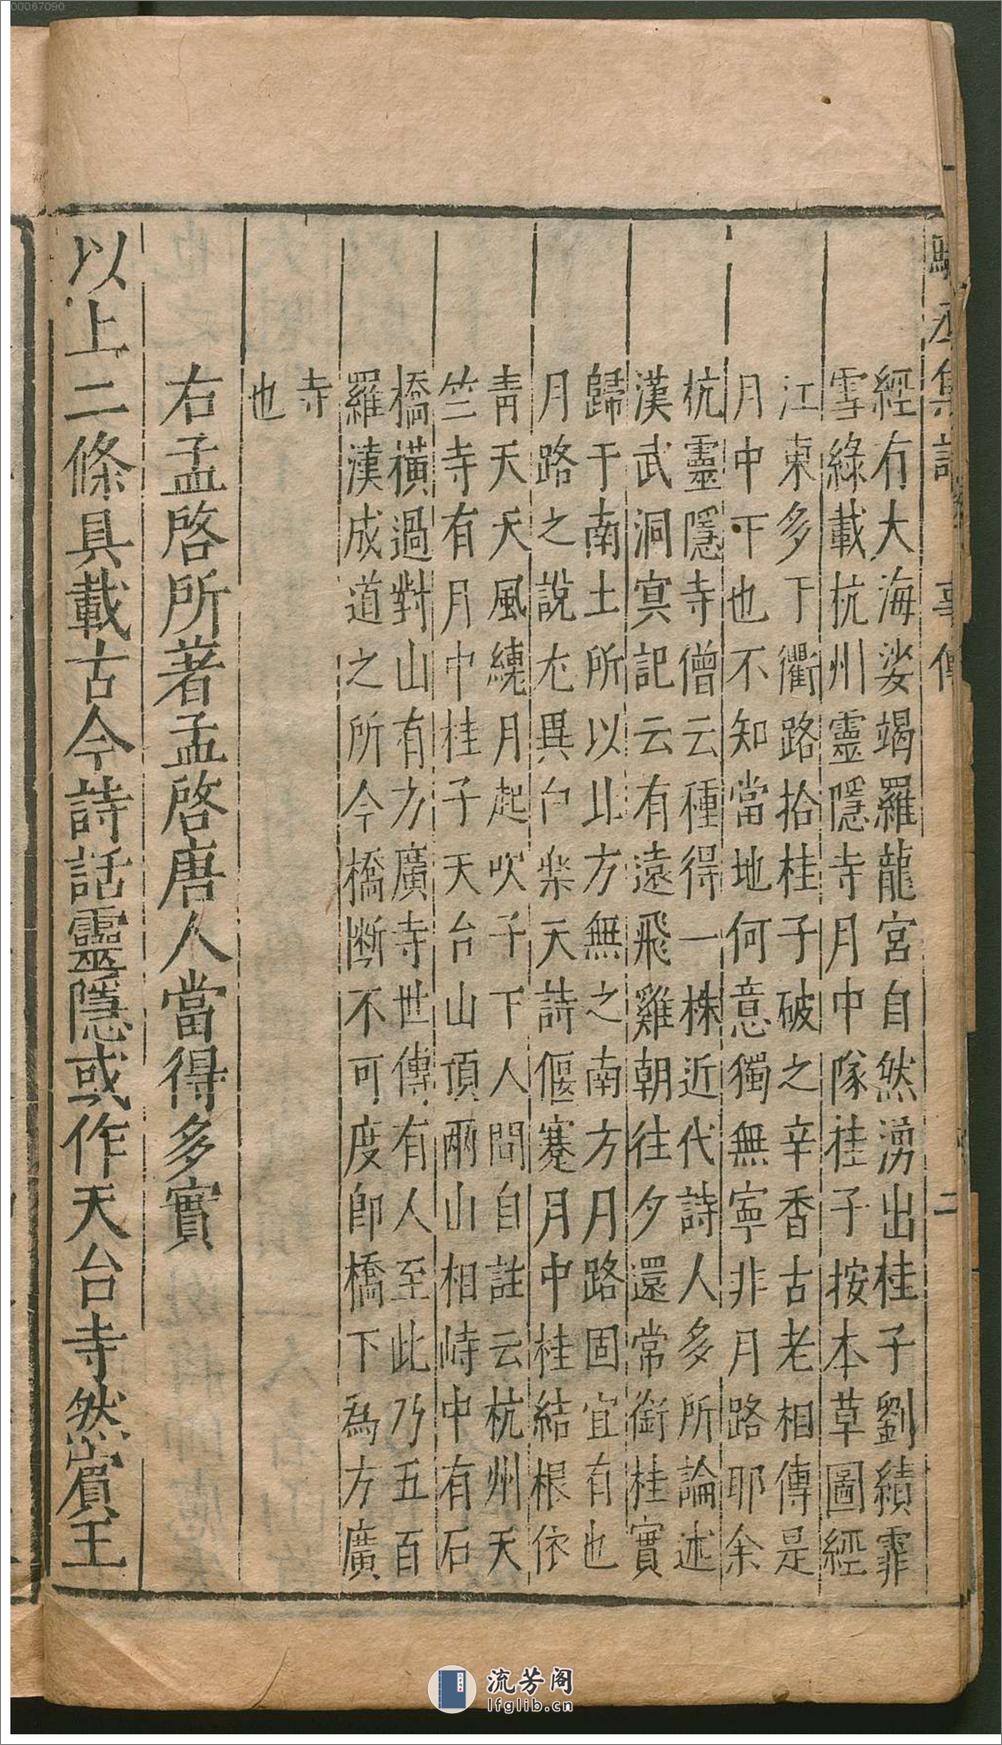 經有大海娑竭羅龍宮自然湧出桂子劉績霏
雪綠載杭州靈隱寺月中隊桂子按本草圖經
江東多于衢路拾桂子破之辛香古老相傳是
月中下也不知當地何意獨無寧非月路耶余
杭靈隱寺僧云種得一株近代詩人多所論述
漢武洞冥記云有遠飛雞朝往夕還常銜桂實
歸于南土所以北方無之南方月路固宜有也
月路之說尤異白樂天詩偃蹇月中桂結根依
青天天風繞月起吹子下人間自註云杭州天
竺寺有月中桂子天台山頂兩山相峙中有石
橋橫過對山有方廣寺世傳有人至此乃五百
羅漢成道之所今橋斷不可度卽橋下為方廣
寺
也
右孟啓所著孟啓唐人當得多實
以上二條具載古今詩話靈隱或作天台寺然賓王
二
00067090
流芳阁
lfglib.cn